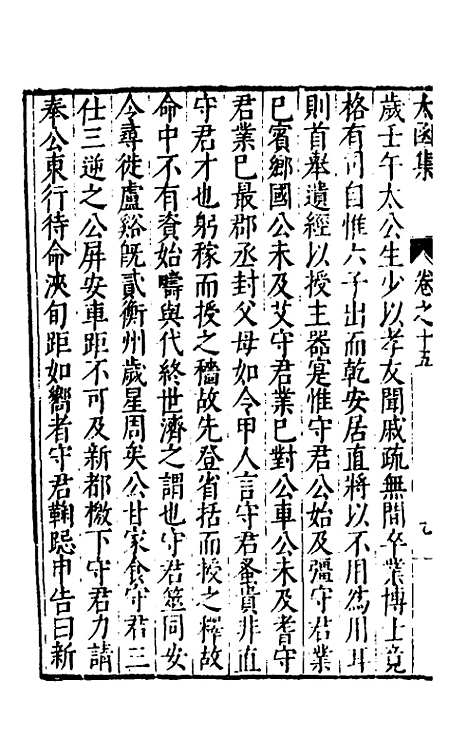 太函集 卷之十五
歲壬午太公生少以孝友聞戚疏無間卒業博士竟
格有司自惟六子出而乾安居直將以不用爲用耳
則首舉遺經以授主器寔惟守君公始及彊守君業
已賓鄉國公未及艾守君業已對公車公未及耆守
君業已最郡丞封父母如令甲人言守君蚤貴非直
守君才也躬稼而授之穡故先登省括而授之釋故
命中不有資始疇與代終世濟之謂也守君筮同安
令尋徙盧谿旣貳衡州歲星周矣公甘家食守君三
仕三逆之公屏安車距不可及新都檄下守君力請
奉公東行待命浹旬距如嚮者守君鞠跽申告曰新